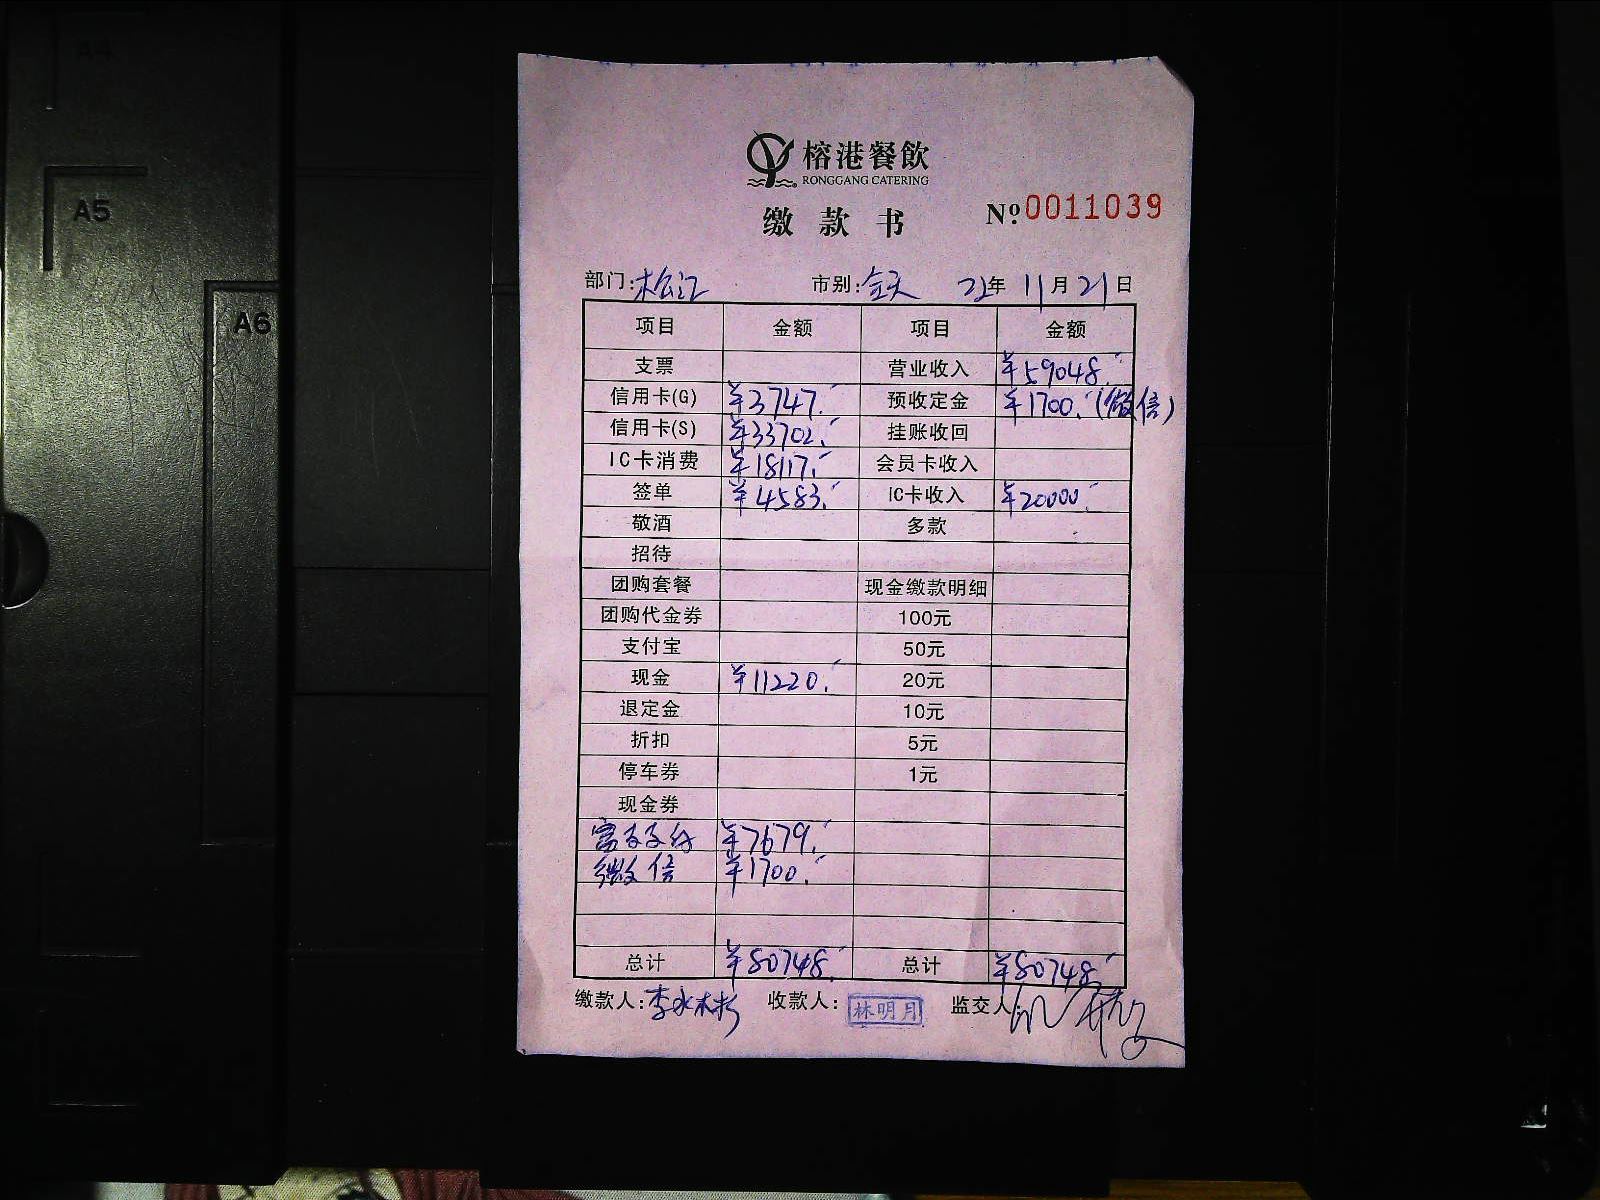 A4
A5
A6
榕港餐飲
RONGGANG CATERING
缴款书 №0011039
部门:松江 市别:全天 22年 11月21日
项目 金额 项目 金额
支票 营业收入 ¥59048.-
信用卡(G) ¥3747.- 预收定金 ¥1700.-(微信)
信用卡(S) ¥33702.- 挂账收回
IC卡消费 ¥18117.- 会员卡收入
签单 ¥4583.- IC卡收入 ¥20000.-
敬酒 多款
招待
团购套餐 现金缴款明细
团购代金券 100元
支付宝 50元
现金 ¥11220.- 20元
退定金 10元
折扣 5元
停车券 1元
现金券
富友支付 ¥7679.-
微信 ¥1700.-
总计 ¥80748.- 总计 ¥80748.-
缴款人:李水彬 收款人:林明月 监交人: